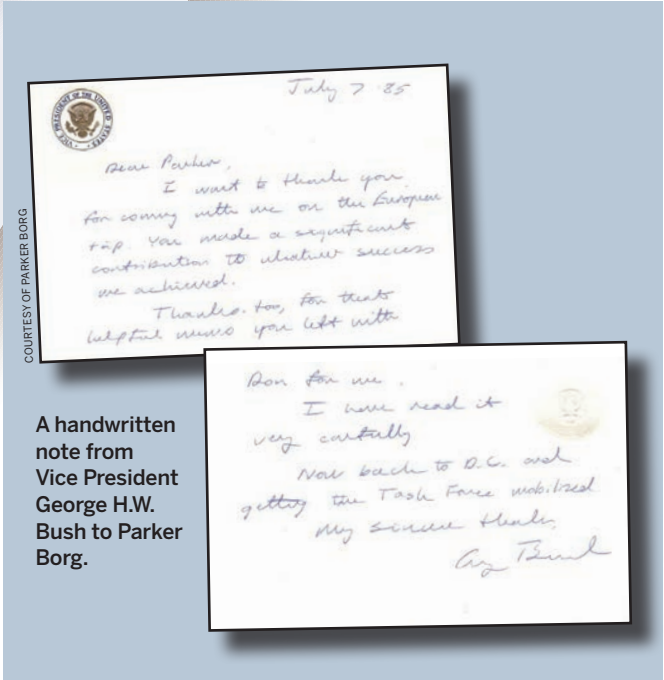 COURTESY OF PARKER BORG
VICE PRESIDENT OF THE UNITED STATES
July 7 85
Dear Parker,
I want to thank you
for coming with me on the European
trip. You made a significant
contribution to whatever success
we achieved.
Thanks, too, for that
helpful memo you left with
Don for me.
I have read it
very carefully
Now back to D.C. and
getting the Task Force mobilized
My sincere thanks,
Bush
A handwritten
note from
Vice President
George H.W.
Bush to Parker
Borg.